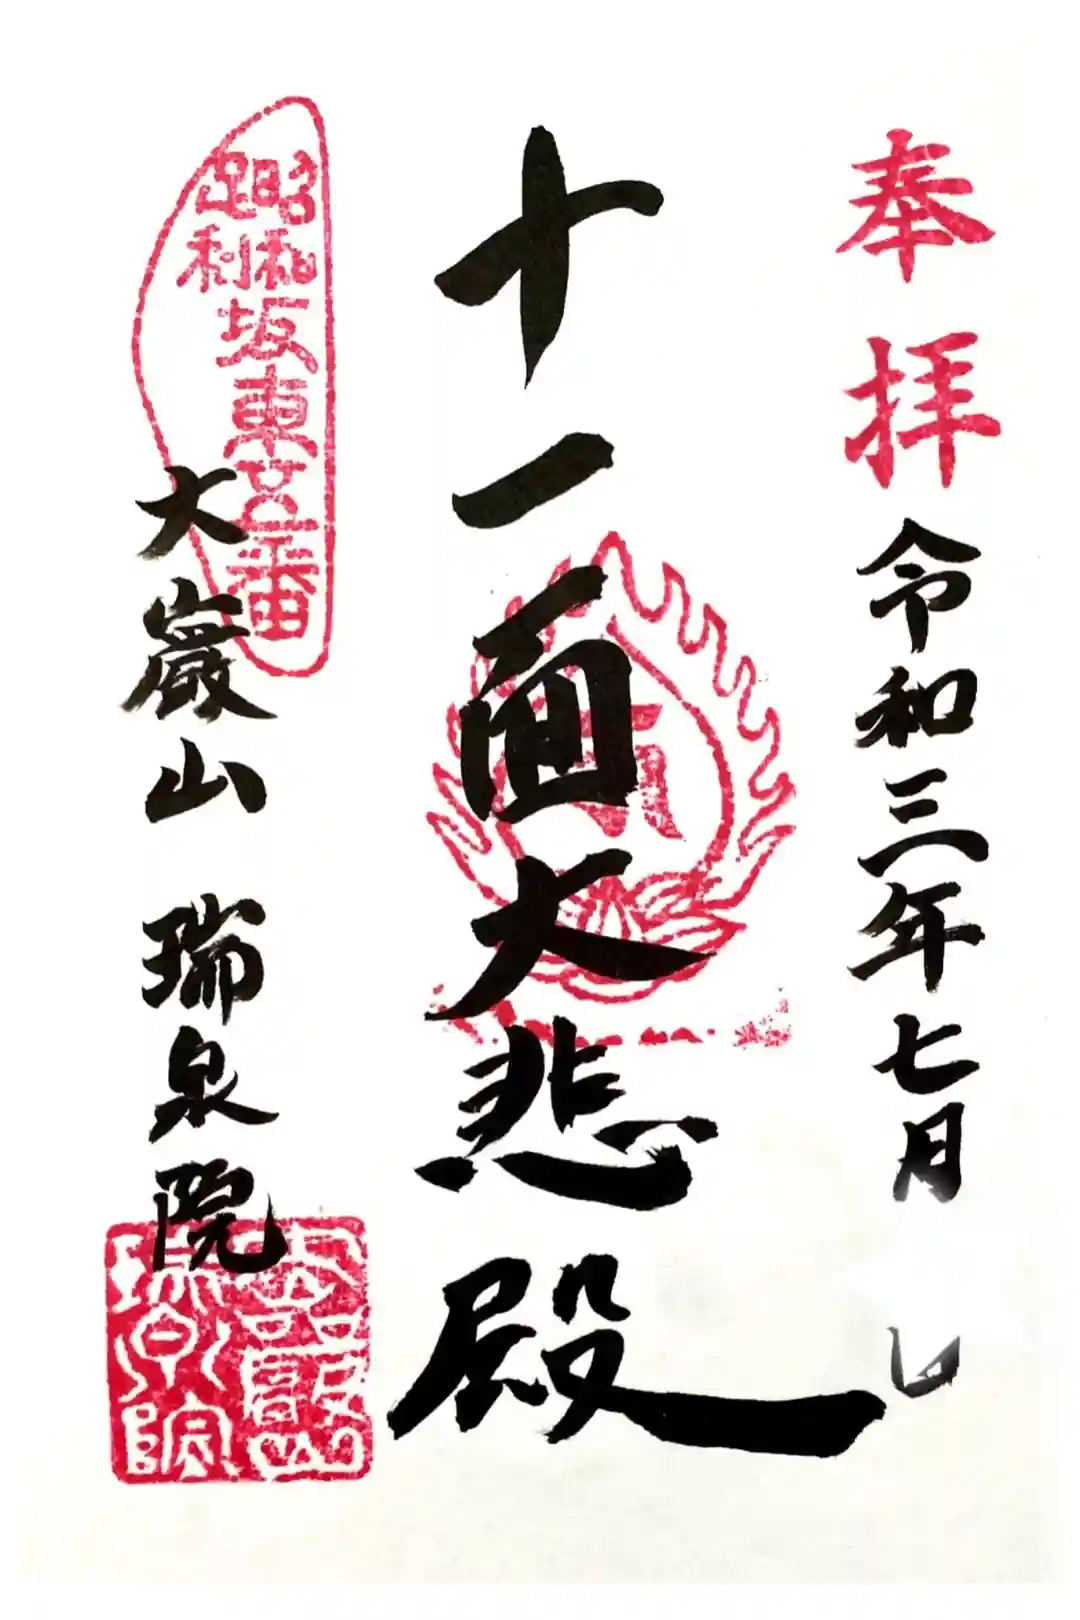 奉拝
令和三年七月
十一面大悲殿
昭和
足利
坂東廿五番
大巖山 瑞泉院
大巖山
瑞泉院